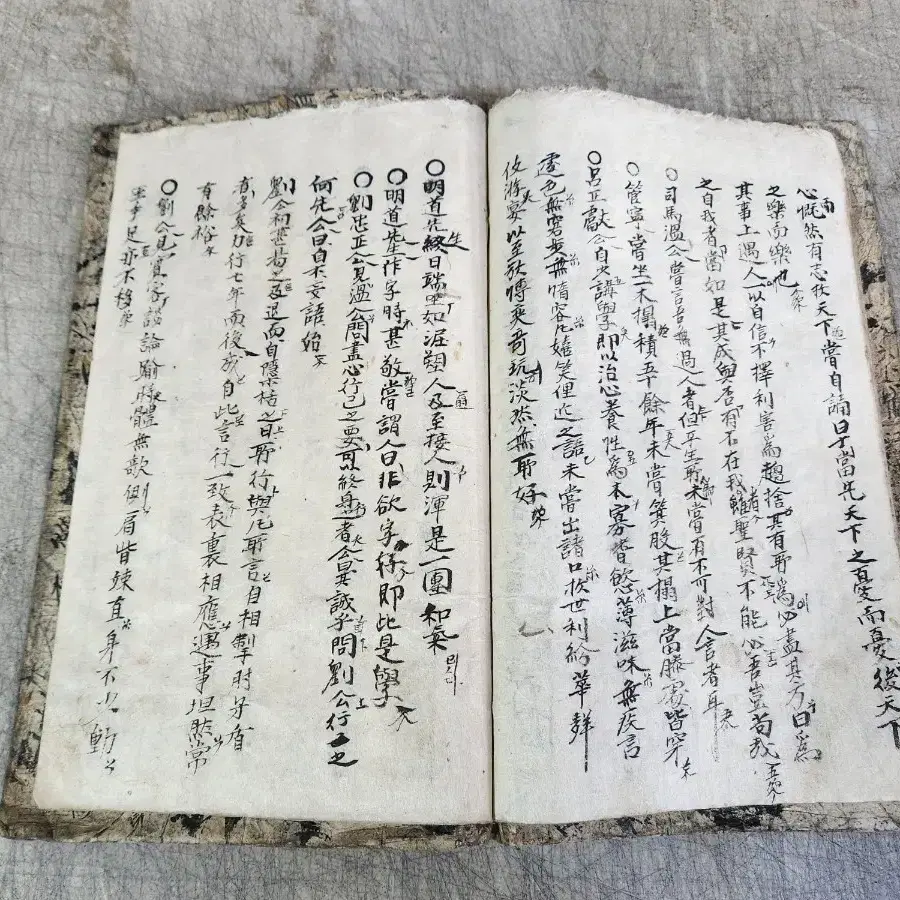 心慨然有志於天下嘗自誦曰士當先天下之憂而憂後天下
之樂而樂也
其事上遇人一以自信不擇利害爲趨捨其有所爲必盡其方曰爲
之自我者當如是其成與否有不在我者雖聖賢不能必吾豈苟哉
○司馬溫公嘗言吾無過人者但平生所爲未嘗有不可對人言者耳
○管寧嘗坐一木榻積五十餘年未嘗箕股其榻上當膝處皆穿
○呂正獻公自少講學即以治心養性爲本寡嗜慾薄滋味無疾言
遽色無窘步無惰容凡嬉笑俚近之語未嘗出諸口於世利紛華聲
伎游宴以至於博奕奇玩淡然無所好
○明道先生終日端坐如泥塑人及至接人則渾是一團和氣
○明道先生作字時甚敬嘗謂人曰非欲字好即此是學
○劉忠正公見溫公問盡心行己之要可以終身者公曰其誠乎問劉公行之
何先公曰自不妄語始
劉公初甚易之及退而自檃栝之日所行與凡所言自相掣肘矛盾
者多矣力行七年而後成自此言行一致表裏相應遇事坦然常
有餘裕
○劉公見賓客談論踰時體無欹側肩背竦直身不少動
至手足亦不移